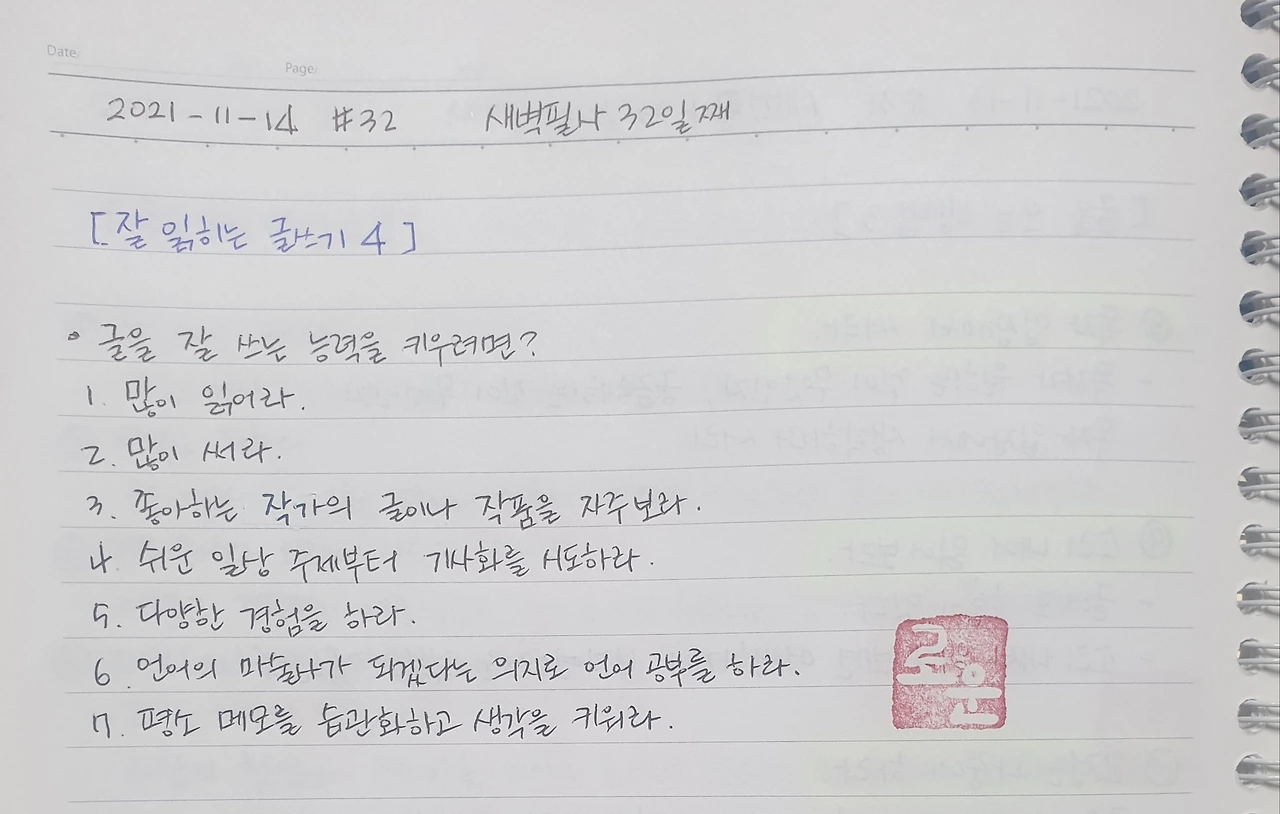 Date
Page
2021-11-14 #32 새벽필사 32일째
[잘 읽히는 글쓰기 4]
• 글을 잘 쓰는 능력을 키우려면?
1. 많이 읽어라.
2. 많이 써라.
3. 좋아하는 작가의 글이나 작품을 자주보라.
4. 쉬운 일상 주제부터 기사화를 시도하라.
5. 다양한 경험을 하라.
6. 언어의 마술사가 되겠다는 의지로 언어 공부를 하라.
7. 평소 메모를 습관화하고 생각을 키워라.